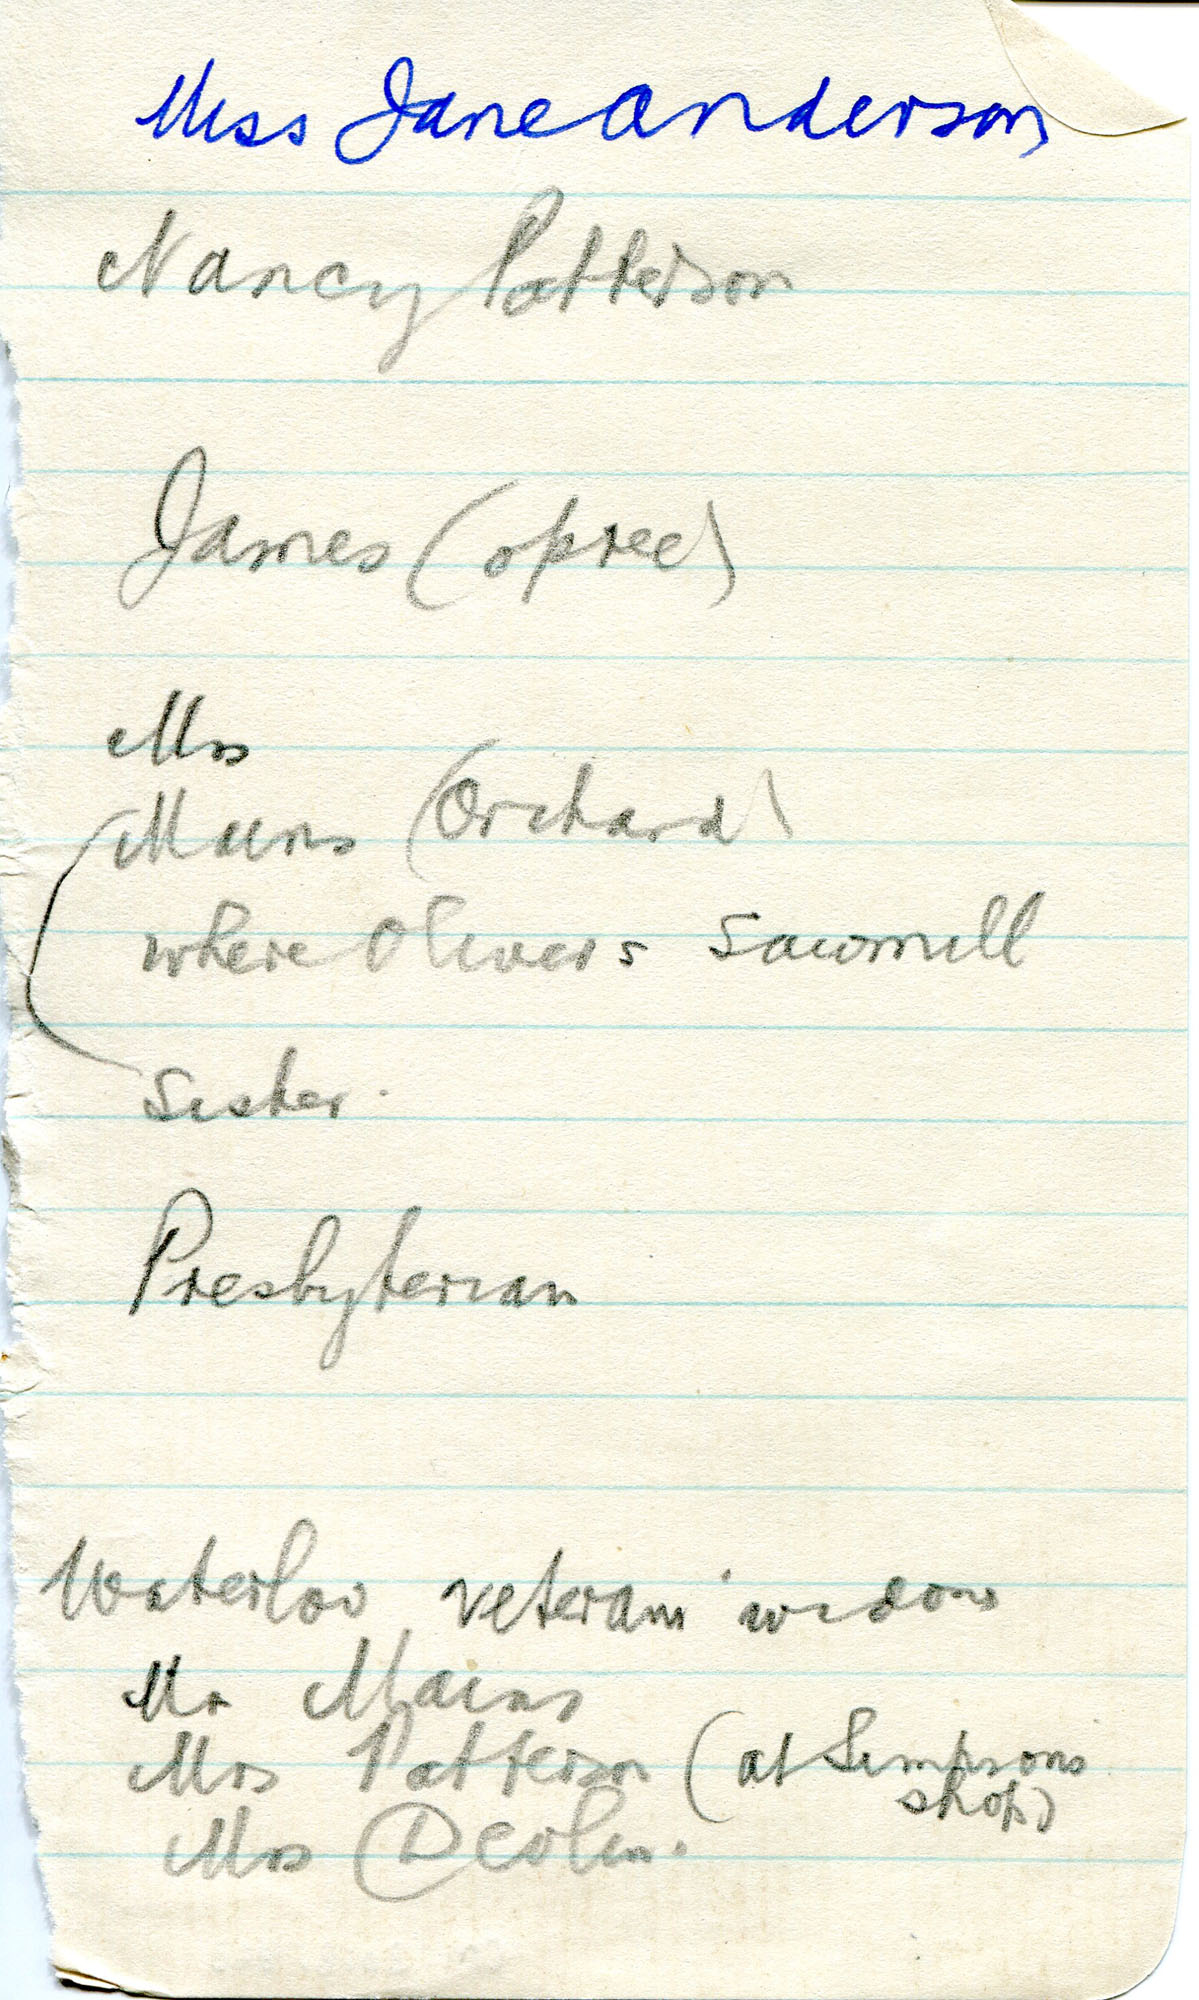 Miss Jane Anderson
Nancy Patterson
James (spree)
Mrs
Mains (Orchard)
where Olivers sawmill
sister.
Presbyterian
Waterloo veterans' widows
Mr Mains
Mrs Patterson (at Simpsons
shop)
Mrs Devlin.